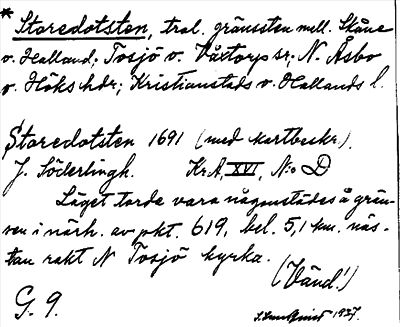 * Storedotsten, tral. gränssten mell. Skåne
o. Halland; Tosjö o. Våxtorps sr; N. Åsbo
o. Höks hdr; Kristianstads o. Hallands l.
Storedotsten 1691 (med kartbeskr.).
J. Söderlingh. KrA, XVI, No D
Läget torde vara någonstädes å grän-
sen i närh. av pkt. 619, bel. 5,1 km. näs-
tan rakt N Tosjö kyrka.
(Vänd!)
G. 9.
1937.